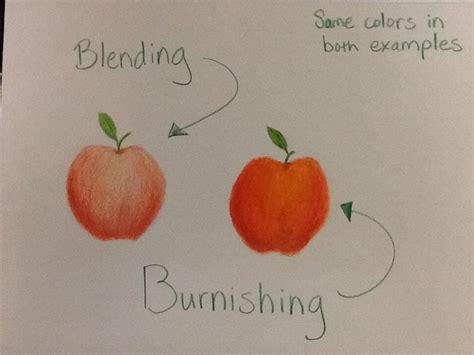 Blending
Same colors in
both examples
Burnishing